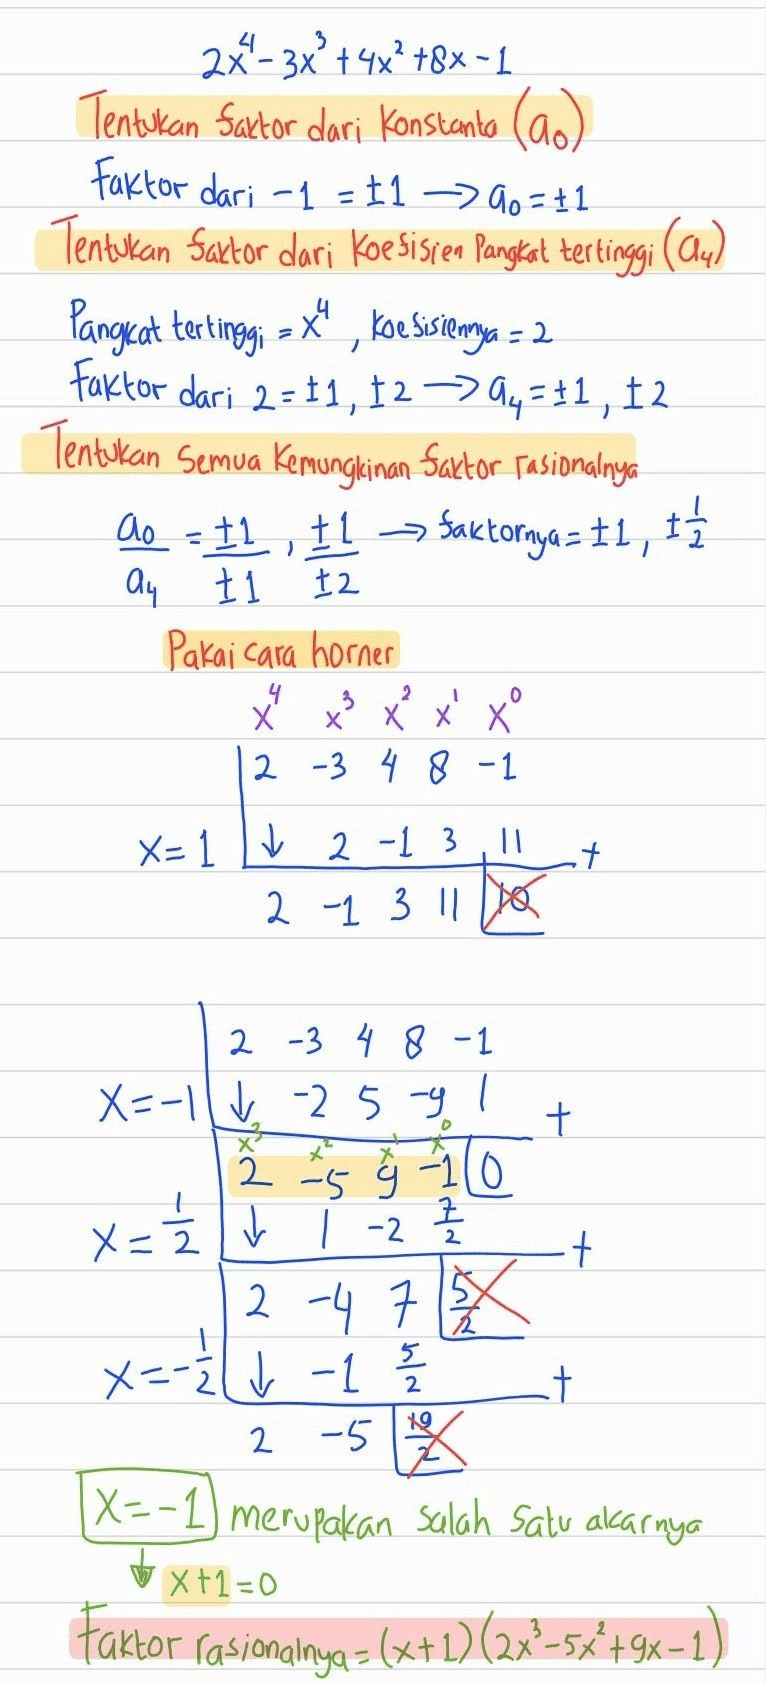 2x⁴ - 3x³ + 4x² + 8x - 1
Tentukan faktor dari Konstanta (a₀)
Faktor dari -1 = ±1 → a₀ = ±1
Tentukan faktor dari Koefisien Pangkat tertinggi (a₄)
Pangkat tertinggi = x⁴, koefisiennya = 2
Faktor dari 2 = ±1, ±2 → a₄ = ±1, ±2
Tentukan Semua Kemungkinan faktor rasionalnya
a₀/a₄ = ±1/±1, ±1/±2 → faktornya = ±1, ±1/2
Pakai cara horner
x⁴ x³ x² x¹ x⁰
2 -3 4 8 -1
x = 1 ↓ 2 -1 3 11 +
2 -1 3 11 10
2 -3 4 8 -1
x = -1 ↓ -2 5 -9 1 +
x³ x² x¹ x⁰
2 -5 9 -1 0
x = 1/2 ↓ 1 -2 7/2 +
2 -4 7 5/2
x = -1/2 ↓ -1 5/2 +
2 -5 19/2
x = -1 merupakan salah satu akarnya
↓ x+1 = 0
Faktor rasionalnya = (x+1)(2x³ - 5x² + 9x - 1)